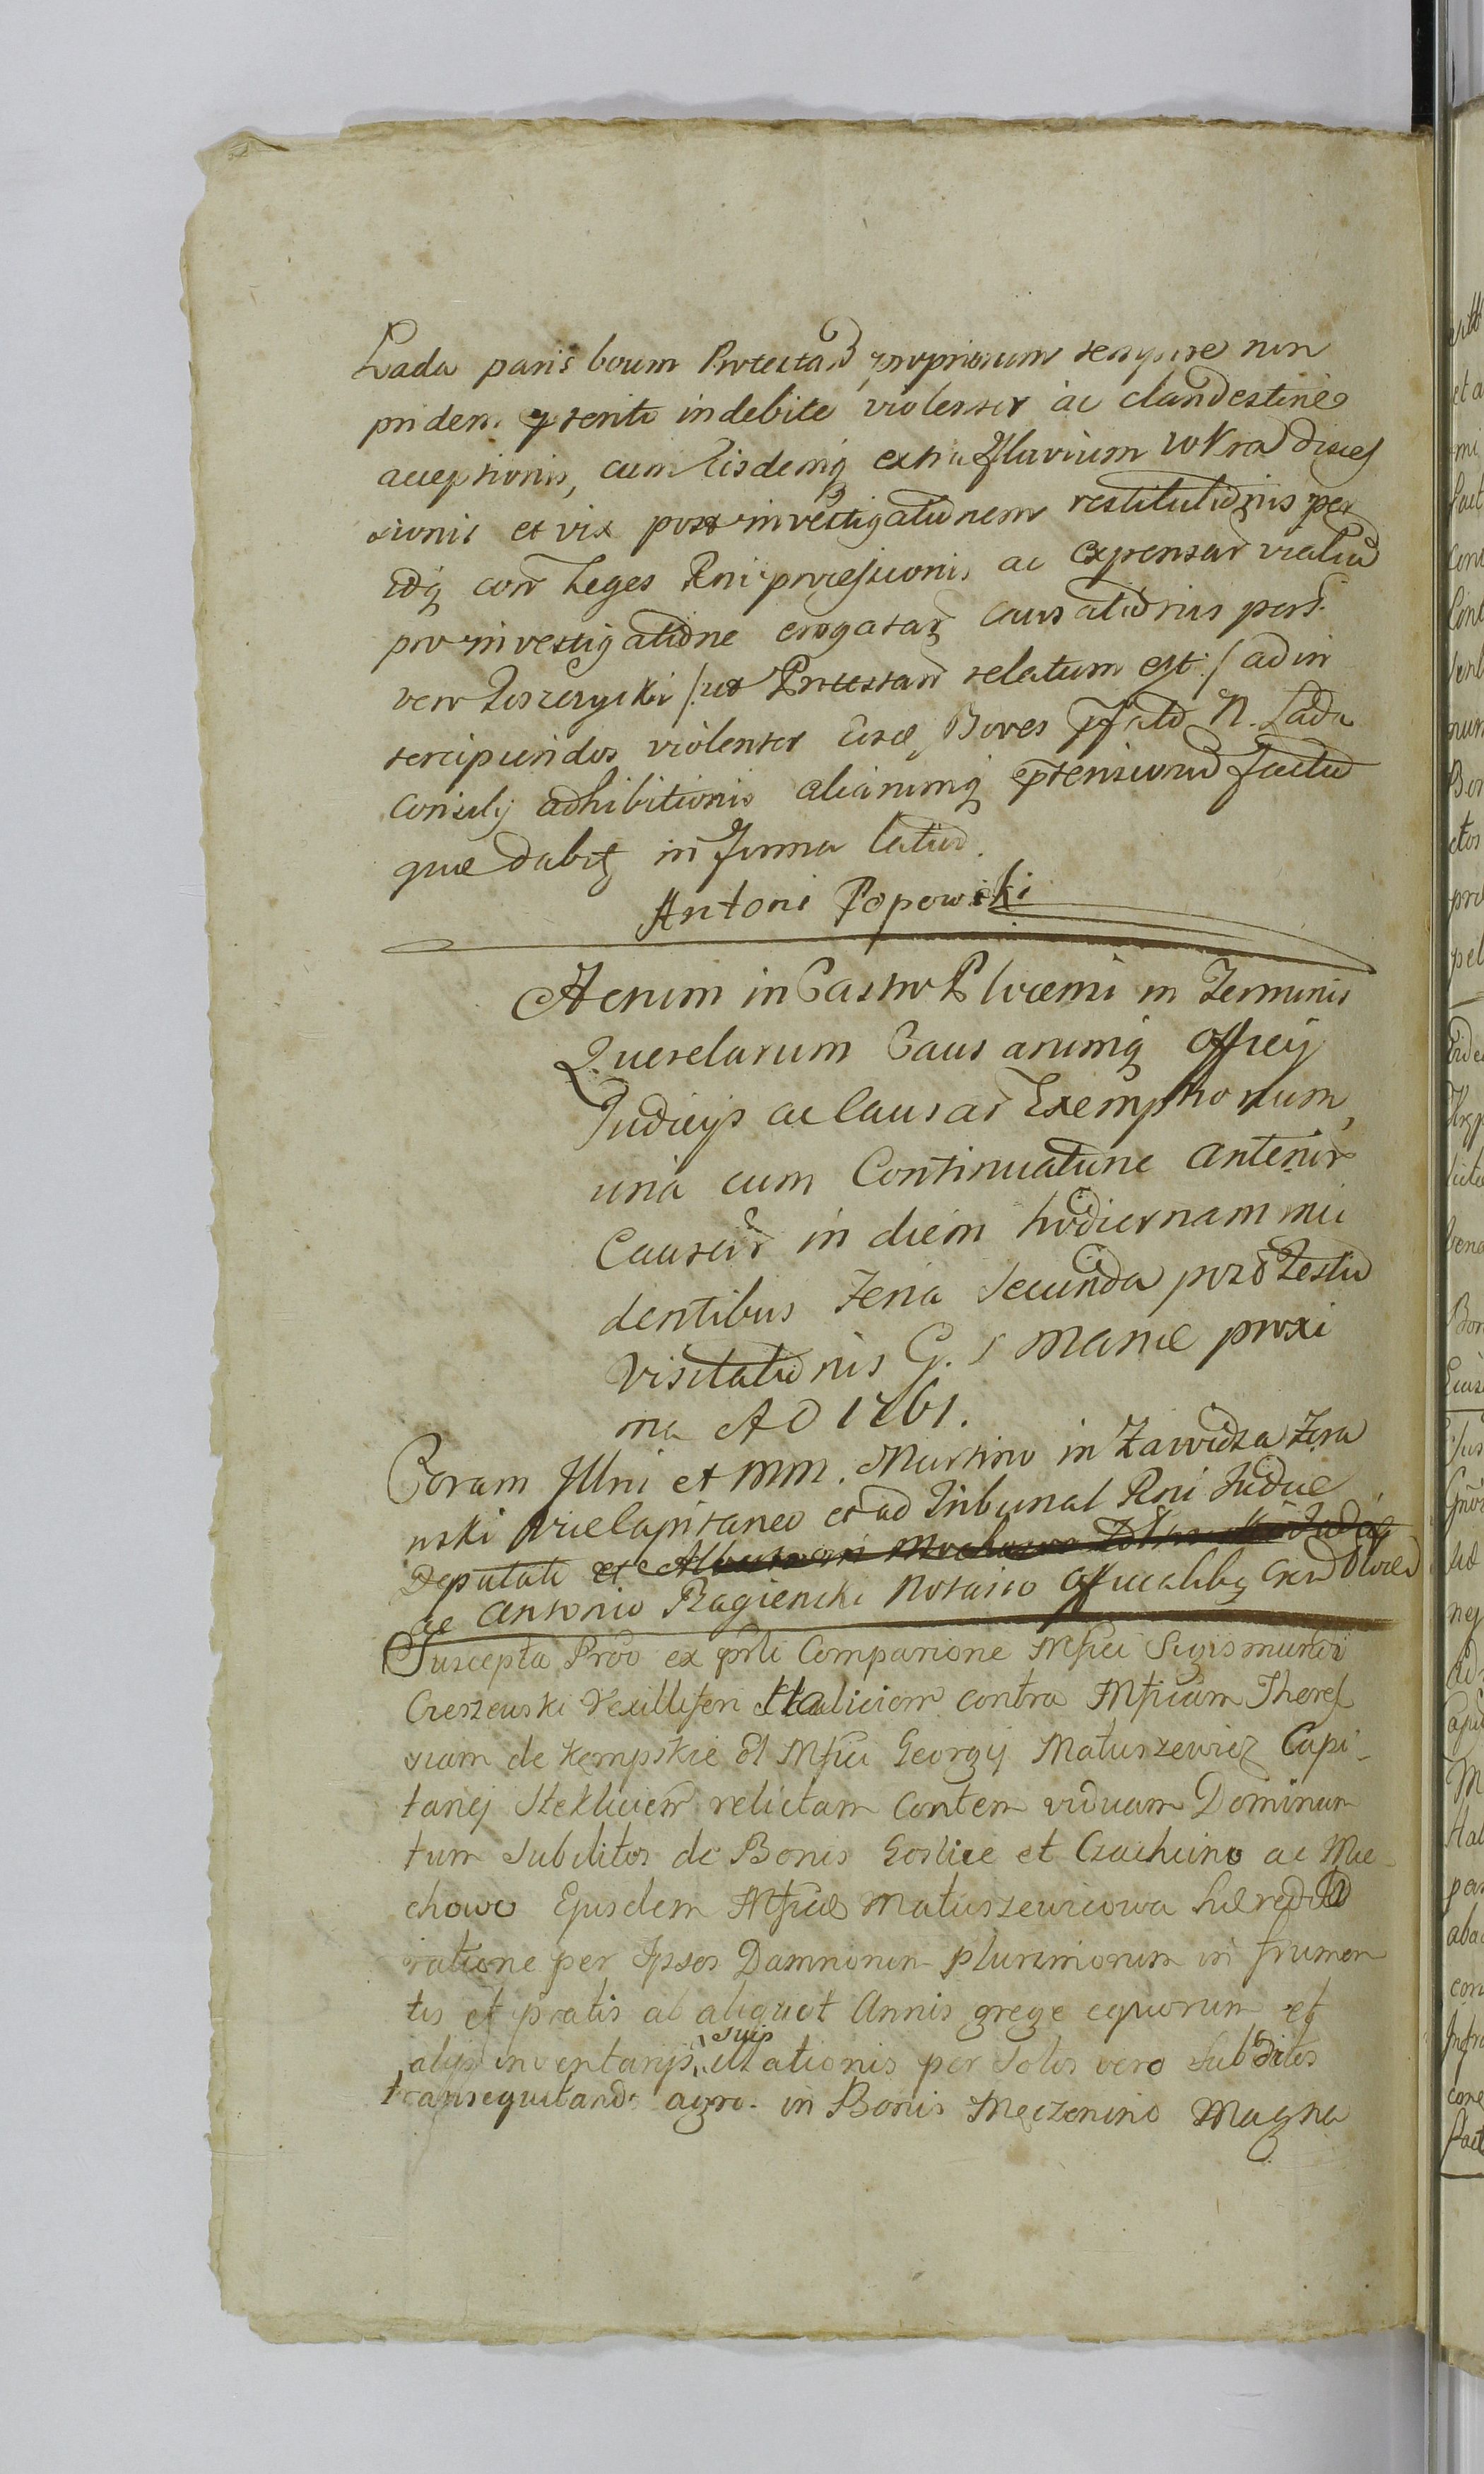 Lada paris boum Protestan propriorum tempore non
pridem praeterito indebite violenter ac clandestine
acceptionis, cum iisdemq extra fluvium Wkra disces
sionis et vix post investigationem restitutionis per
idq con Leges Rni processionis ac expensar viatio
pro investigatione erogatarq causationis per
vero Loszczycki /:ut Protestan relatum est:/ ad in
tercipiendos violenter Boves pfato N. Lada
Consily adhibitionis aliarumq ptensionu factu
quae dabitq in Forma latio.
Antoni Popowski
Actum in Castro Plocensi in Terminis
Querelarum Causarumq Officy
Judicys ac Causar Exemptionum,
una cum Continuatione anterior
Causar in diem hodiernam inci
dentibus Feria Secunda post Festu
Visitationis G. S Mariae proxi
ma AD 1761.
Coram Illni et MM. Martino in Zawidza Zera
nski ViceCapitaneo et ad Tribunal Rni Judice
Deputato et
ac Antonio Ragienski Notario Officialibq Cren Plocen
Suscepta Pro ex prti Comparione Mfici Sigismundi
Creszewski Vexilliferi Haliciem contra Mficam There
siam de Kempskie ol Mfici Georgy Matuszewicz Capi-
taney Stekliciem relictam Contem viduam Dominam
tum Subditos de Bonis Goslice et Czachcino ac Mie-
chowo Ejusdem Mficae Matuszewicowa haeredit
ratione per Ipsos Damnorum plurimorum in frumen
tis et pratis ab aliquot Annis grege equorum et
alys inventarys suis illationis per Solos vero Subditos
transequitando agro in Bonis Męczenino Magna